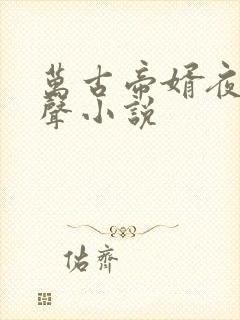 萬古帝婿夜
聲小說
佑齊